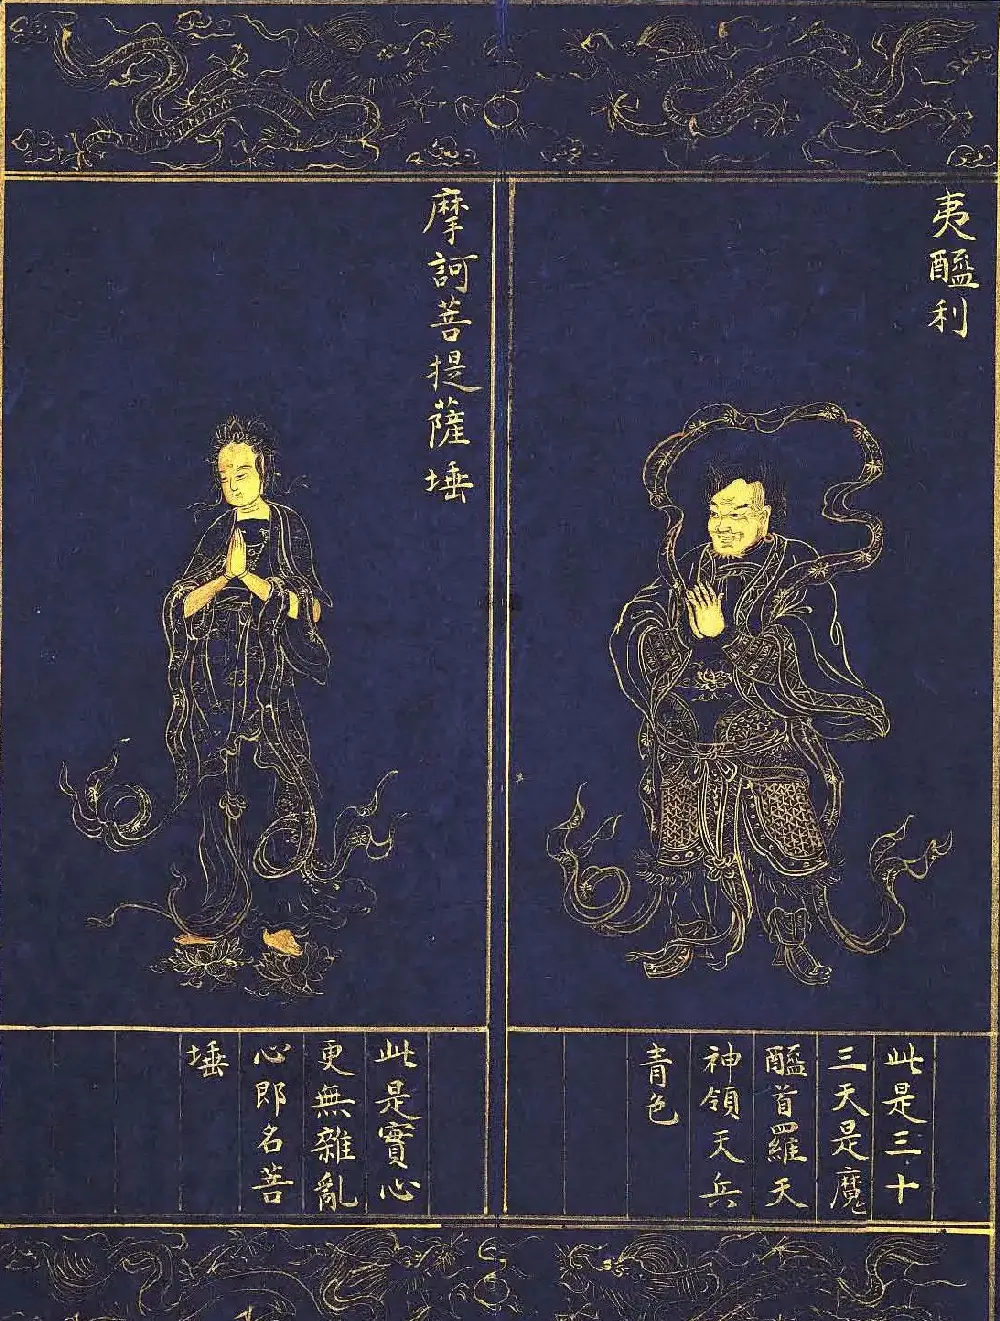 夷醯利
此是三十
三天是魔
醯首羅天
神領天兵
青色
摩訶菩提薩埵
此是實心
更無雜亂
心即名菩
埵